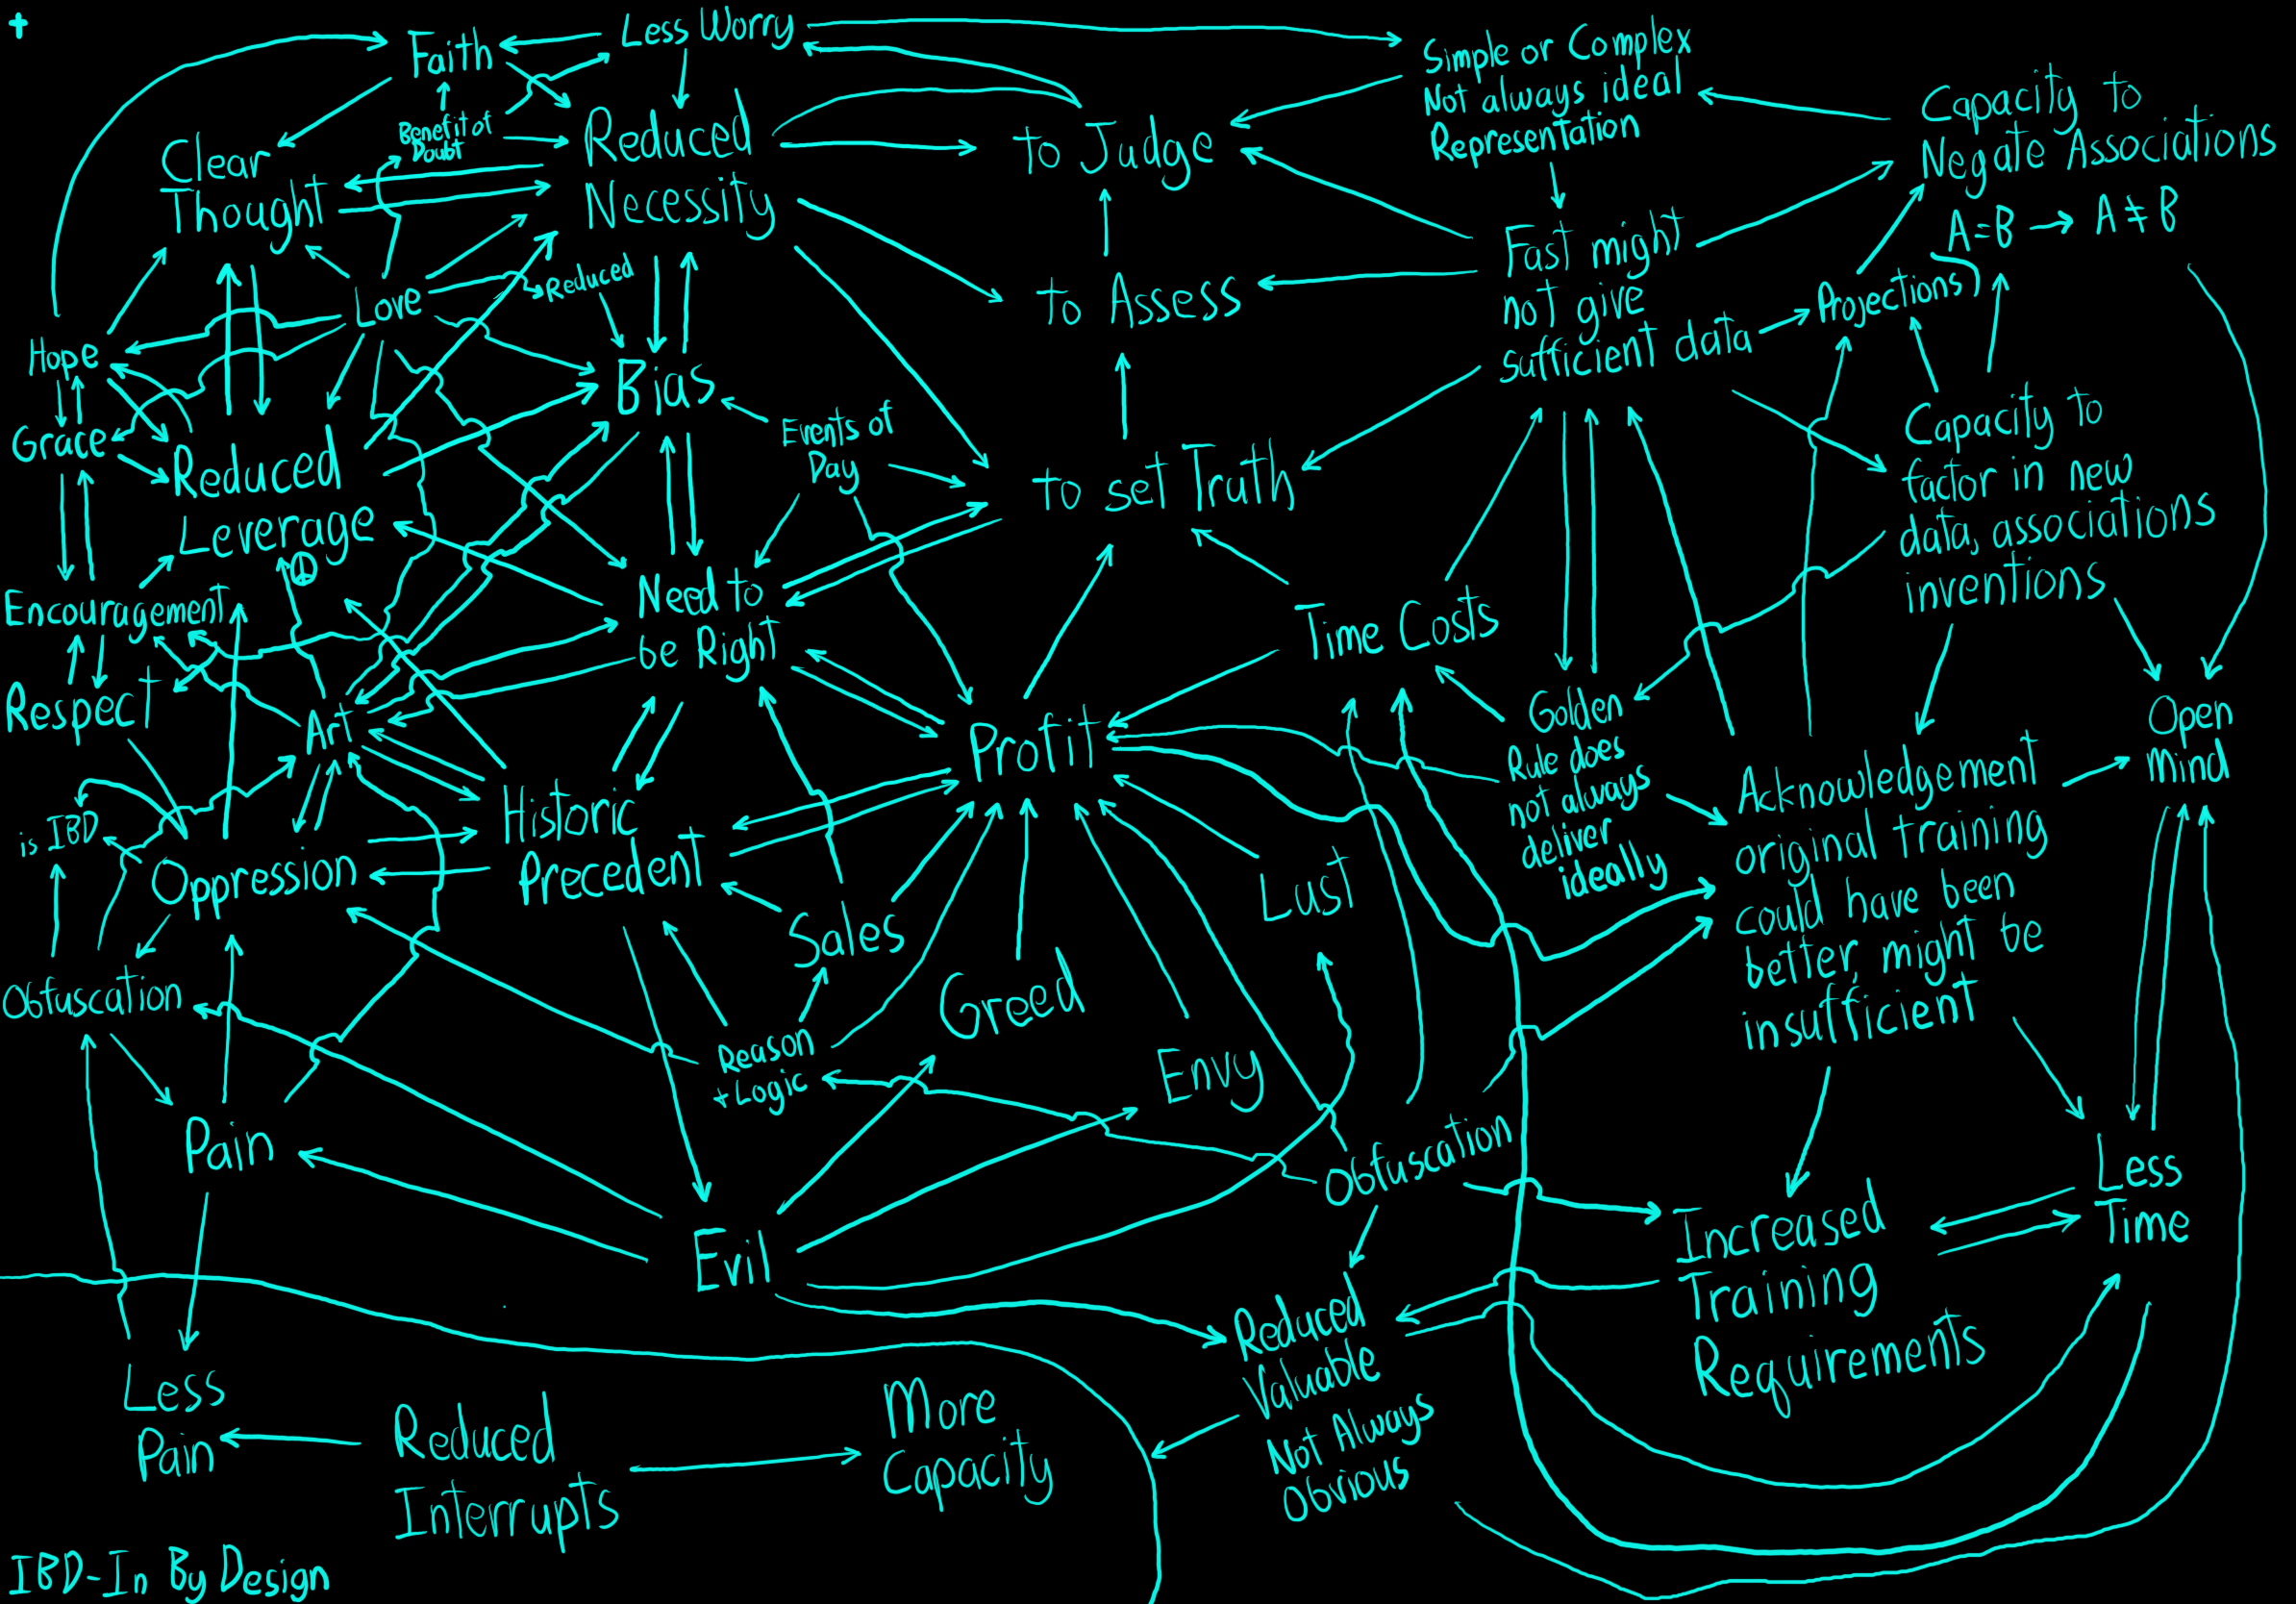 Less Worry
Faith
Simple or Complex
Not always ideal
Representation
Capacity to
Negate Associations
A=B → A ≠ B
Benefit of
Doubt
Reduced
Necessity
to Judge
Clear
Thought
Fast might
not give
sufficient data
Projections
Love
Reduced
to Assess
Hope
Bias
Grace
Events of
Day
Capacity to
factor in new
data, associations
inventions
Reduced
Leverage
to set Truth
Encouragement
Need to
be Right
Time Costs
Respect
Art
Profit
Golden
Rule does
not always
deliver
ideally
Open
Mind
Acknowledgement
original training
could have been
better, might be
insufficient
is IBD
Oppression
Historic
Precedent
Lust
Sales
Obfuscation
Greed
Reason
+ Logic
Envy
Pain
Obfuscation
Less
Time
Evil
Increased
Training
Requirements
Reduced
Valuable
Not Always
Obvious
Less
Pain
Reduced
Interrupts
More
Capacity
IBD-In By Design